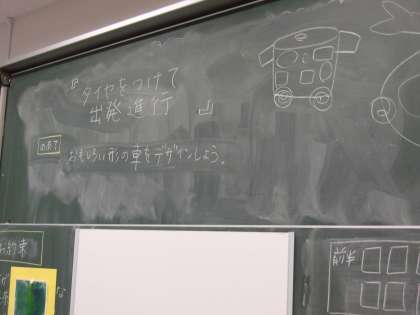 『タイヤをつけて
出発進行
』
めあて
おもしろい形の車をデザインしよう。
お約束
前半
な